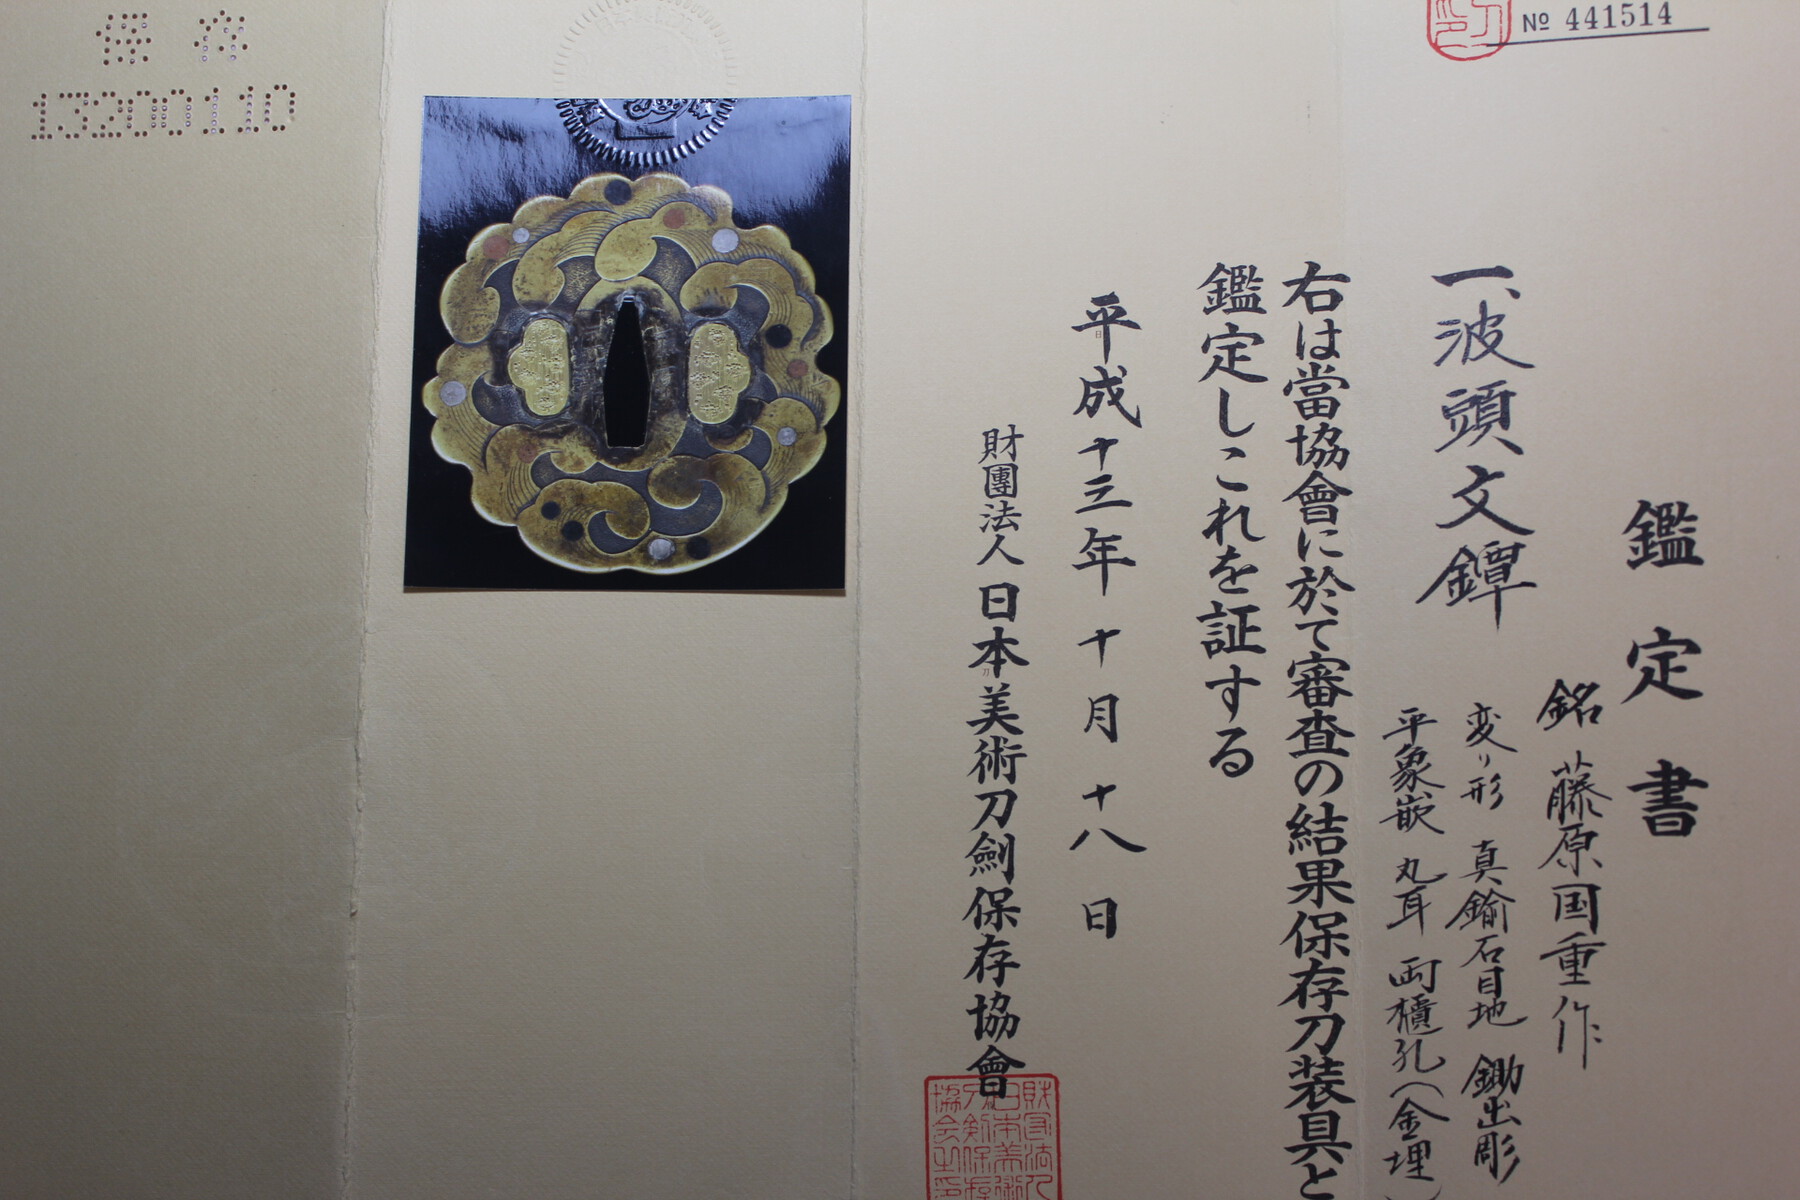 № 441514
鑑定書
一、波頭文鐔
銘 藤原国重作
変り形 真鍮石目地 鋤出彫
平象嵌 丸耳 両櫃孔（金埋）
右は當協會に於て審査の結果保存刀装具と
鑑定しこれを証する
平成十三年十月十八日
財團法人日本美術刀劍保存協會
保存
13200110